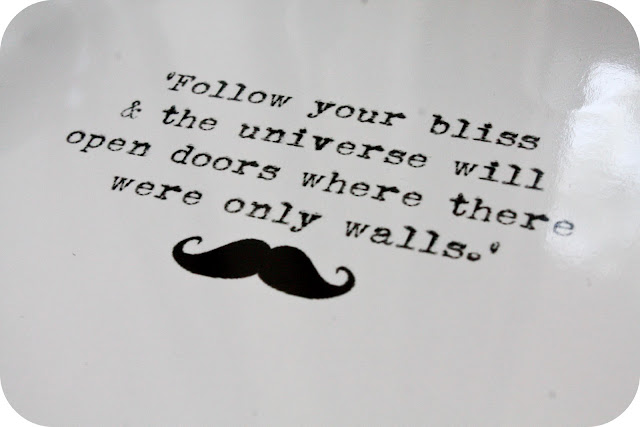 'Follow your bliss
& the universe will
open doors where there
were only walls.'